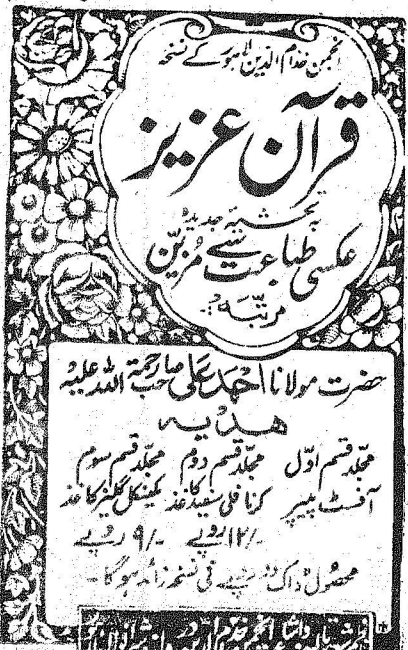 انجمن خدام الدین لاہور کے نسخہ
قرآن عزیز
بحشیہ جدیدہ
عکسی طباعت سے مزین
مرتبہ
حضرت مولانا احمد علی صاحب رحمۃ اللہ علیہ
ہدیہ
مجلد قسم اول مجلد قسم دوم مجلد قسم سوم
آفسٹ پیپر کرنافلی سفید کاغذ کیمیکل گلیزکاغذ
۱۲/- روپے ۹/- روپے
محصول ڈاک روپے فی نسخہ زائد ہوگا۔